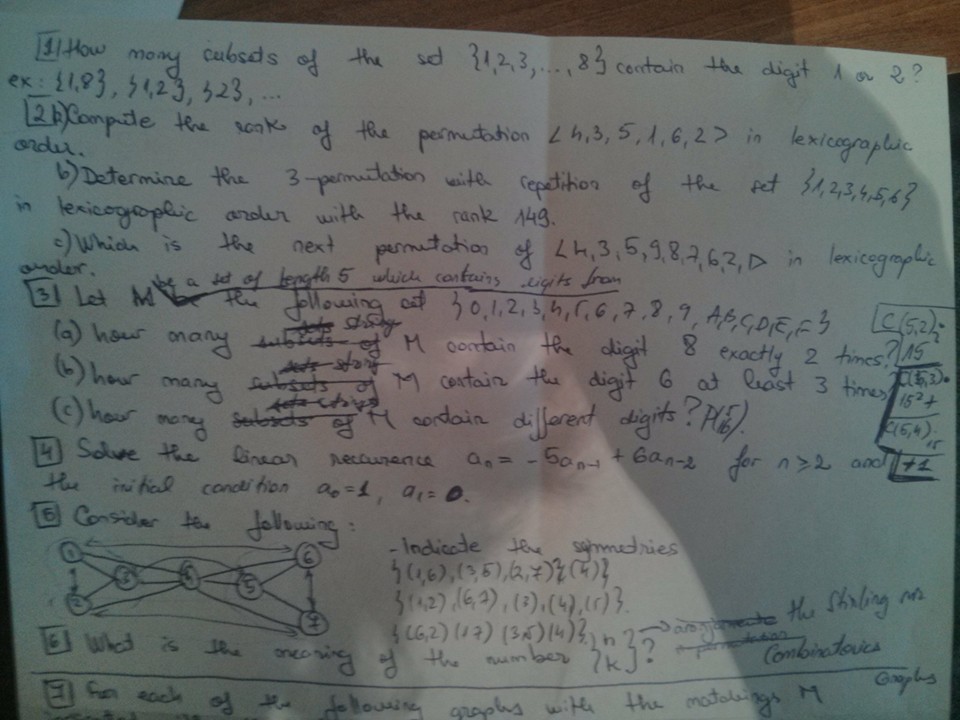 1) How many subsets of the set {1,2,3,...,8} contain the digit 1 or 2?
ex: {1,8}, {1,2}, {2}, ...
2)a) Compute the rank of the permutation <4,3,5,1,6,2> in lexicographic
order.
b) Determine the 3-permutation with repetition of the set {1,2,3,4,5,6}
in lexicographic order with the rank 149.
c) Which is the next permutation of <4,3,5,9,8,7,6,2,1> in lexicographic
order.
be a set of length 5 which contains digits from
3) Let M the following set {0,1,2,3,4,5,6,7,8,9,A,B,C,D,E,F}
(a) how many subsets of M contain the digit 8 exactly 2 times?
(b) how many subsets of M contain the digit 6 at least 3 times
(c) how many subsets of M contain different digits?
C(5,2).
15
C(5,3).
15² +
C(5,4).
15
+1
4) Solve the linear recurrence an = -5an-1 + 6an-2 for n ≥ 2 and
the initial condition a0 = 1, a1 = 0.
5) Consider the following:
1 2 3 4 5 6 7
- Indicate the symmetries
{(1,6),(3,5),(2,7)}{(4)}
{(1,2),(6,7),(3),(4),(5)}.
{(6,2)(1,7)(3,5)(4)}.
6) What is the meaning of the number {n k}? the Stirling nr
Combinatorics
Graphs
7) For each of the following graphs with the matchings M